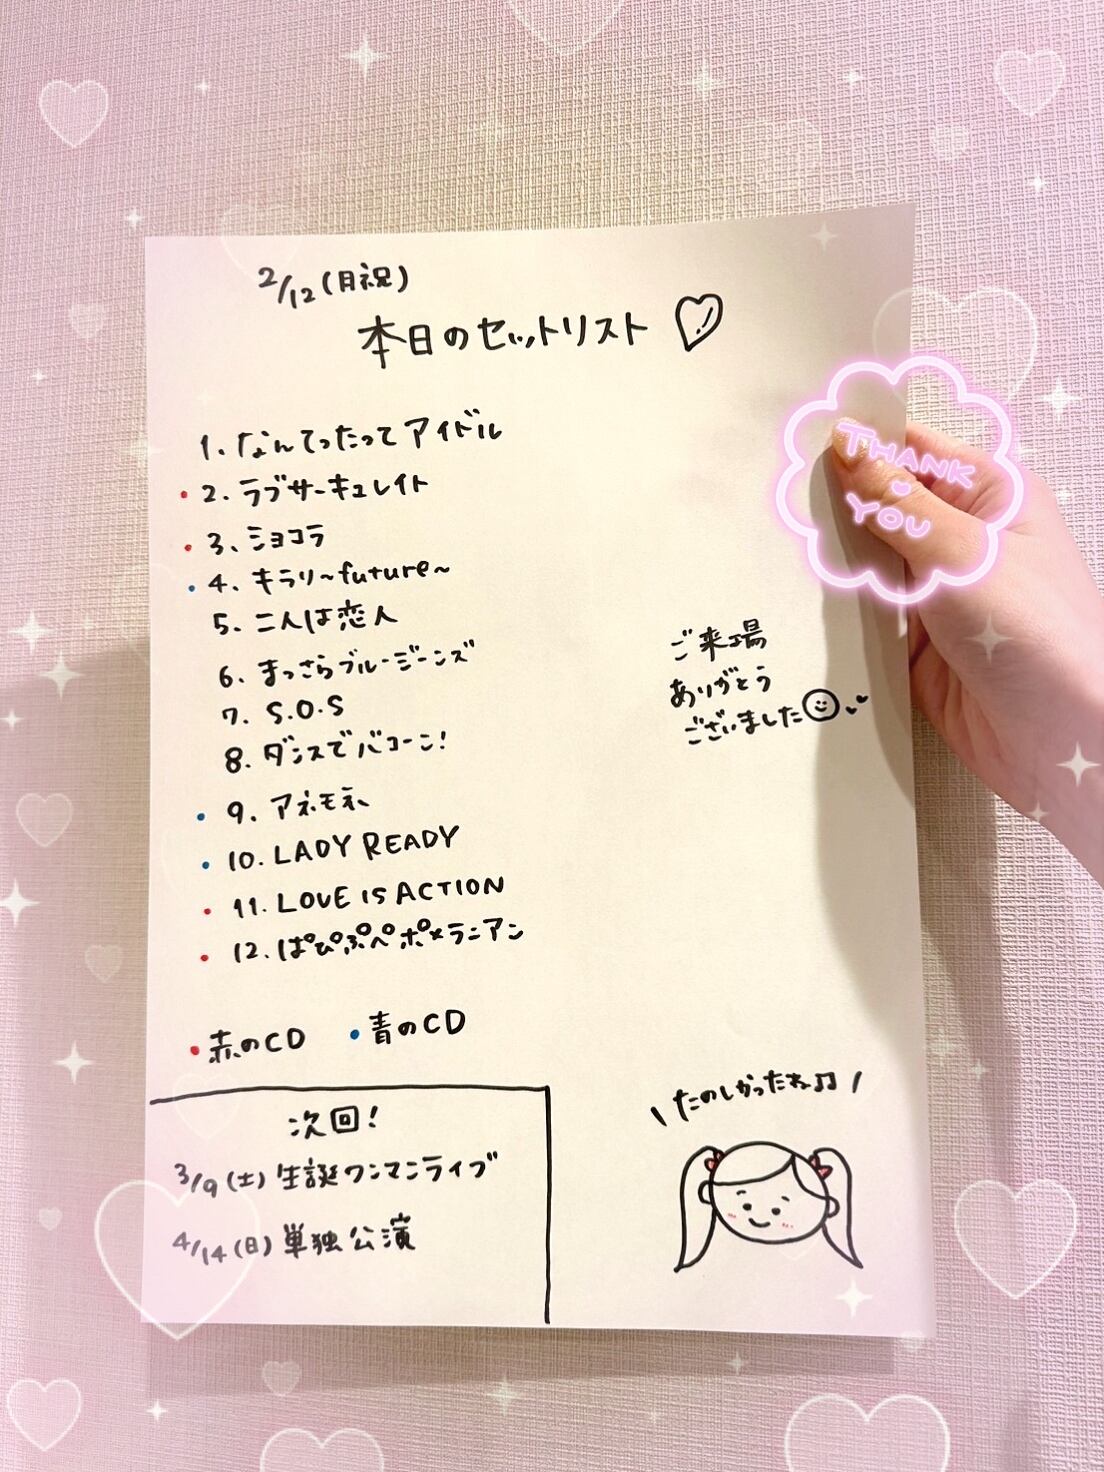 2/12(月祝)
本日のセットリスト
1. なんてったってアイドル
2. ラブサーキュレイト
3、ショコラ
4. キラリ~future~
5. こんは恋人
6. まっさらブルージーンズ
7. S.O.S
8. ダンスでバコーン!
9. アネモネ
10. LADY READY
11. LOVE IS ACTION
12. ぱぴぷぺポメラニアン
赤のCD 青のCD
THANK
YOU
ご来場
ありがとう
ございました
次回!
3/9(土)生誕ワンマンライブ
4/14(日)単独公演
\ たのしかったね♫ /